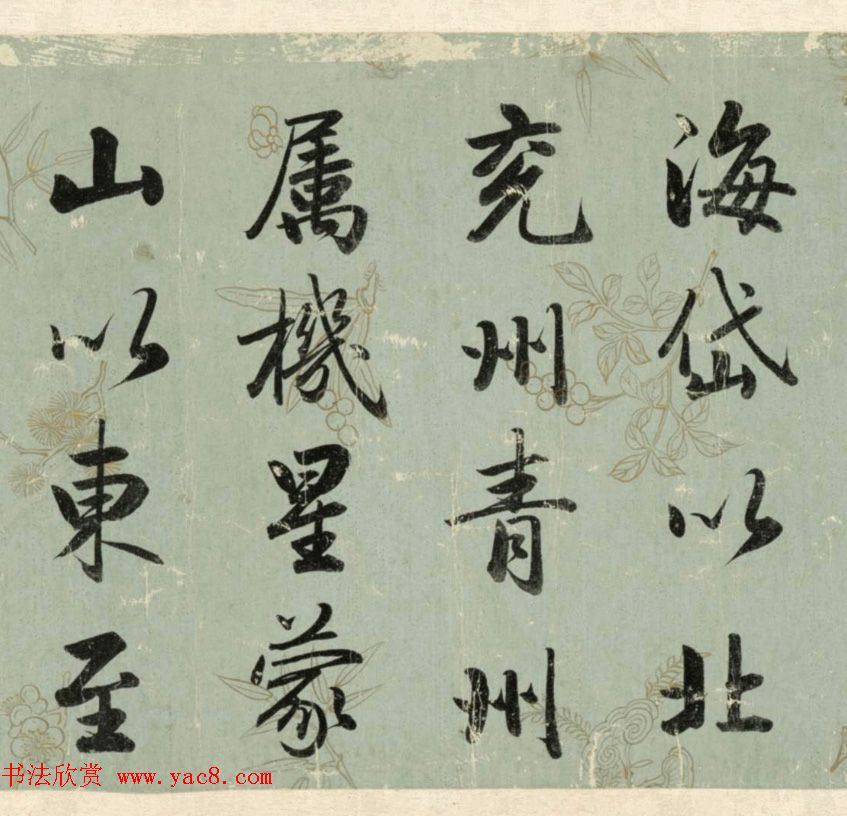 海岱以北
兖州青州
属機星蒙
山以東至
书法欣赏 www.yac8.com